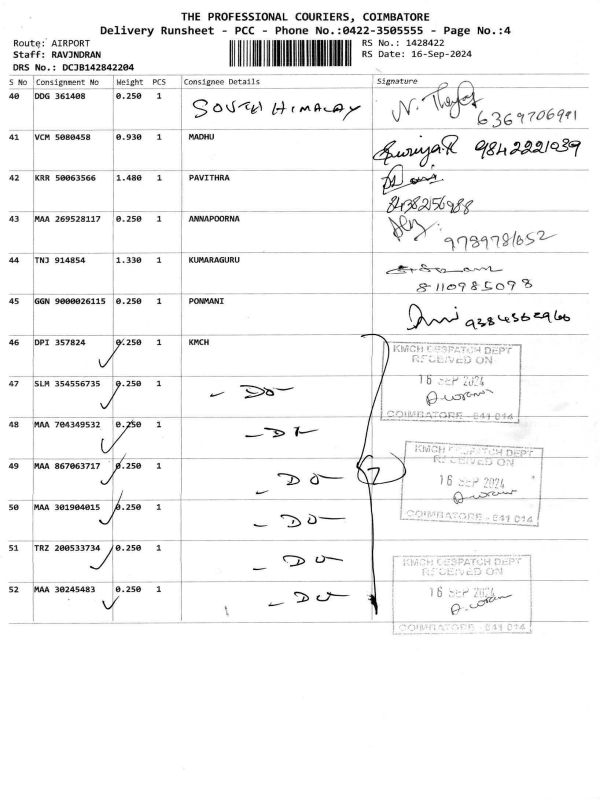 THE PROFESSIONAL COURIERS, COIMBATORE
Delivery Runsheet - PCC - Phone No.:0422-3505555 - Page No.:4
Route: AIRPORT RS No.: 1428422
Staff: RAVJNDRAN RS Date: 16-Sep-2024
DRS No.: DCJB142842204
S No Consignment No Weight PCS Consignee Details Signature
40 DDG 361408 0.250 1 SOUTH HIMALAY
6369706991
41 VCM 5080458 0.930 1 MADHU
9842221039
42 KRR 50063566 1.480 1 PAVITHRA
8438256988
43 MAA 269528117 0.250 1 ANNAPOORNA
9789781652
44 TNJ 914854 1.330 1 KUMARAGURU
8110985098
45 GGN 9000026115 0.250 1 PONMANI
46 DPI 357824 0.250 1 KMCH
KMCH DESPATCH DEPT
RECEIVED ON
16 SEP 2024
COIMBATORE - 641 014
47 SLM 354556735 0.250 1 - Do -
48 MAA 704349532 0.250 1 - Do -
49 MAA 867063717 0.250 1 - Do - 7
KMCH DESPATCH DEPT
RECEIVED ON
16 SEP 2024
COIMBATORE - 641 014
50 MAA 301904015 0.250 1 - Do -
51 TRZ 200533734 0.250 1 - Do -
KMCH DESPATCH DEPT
RECEIVED ON
16 SEP 2024
COIMBATORE - 641 014
52 MAA 30245483 0.250 1 - Do -